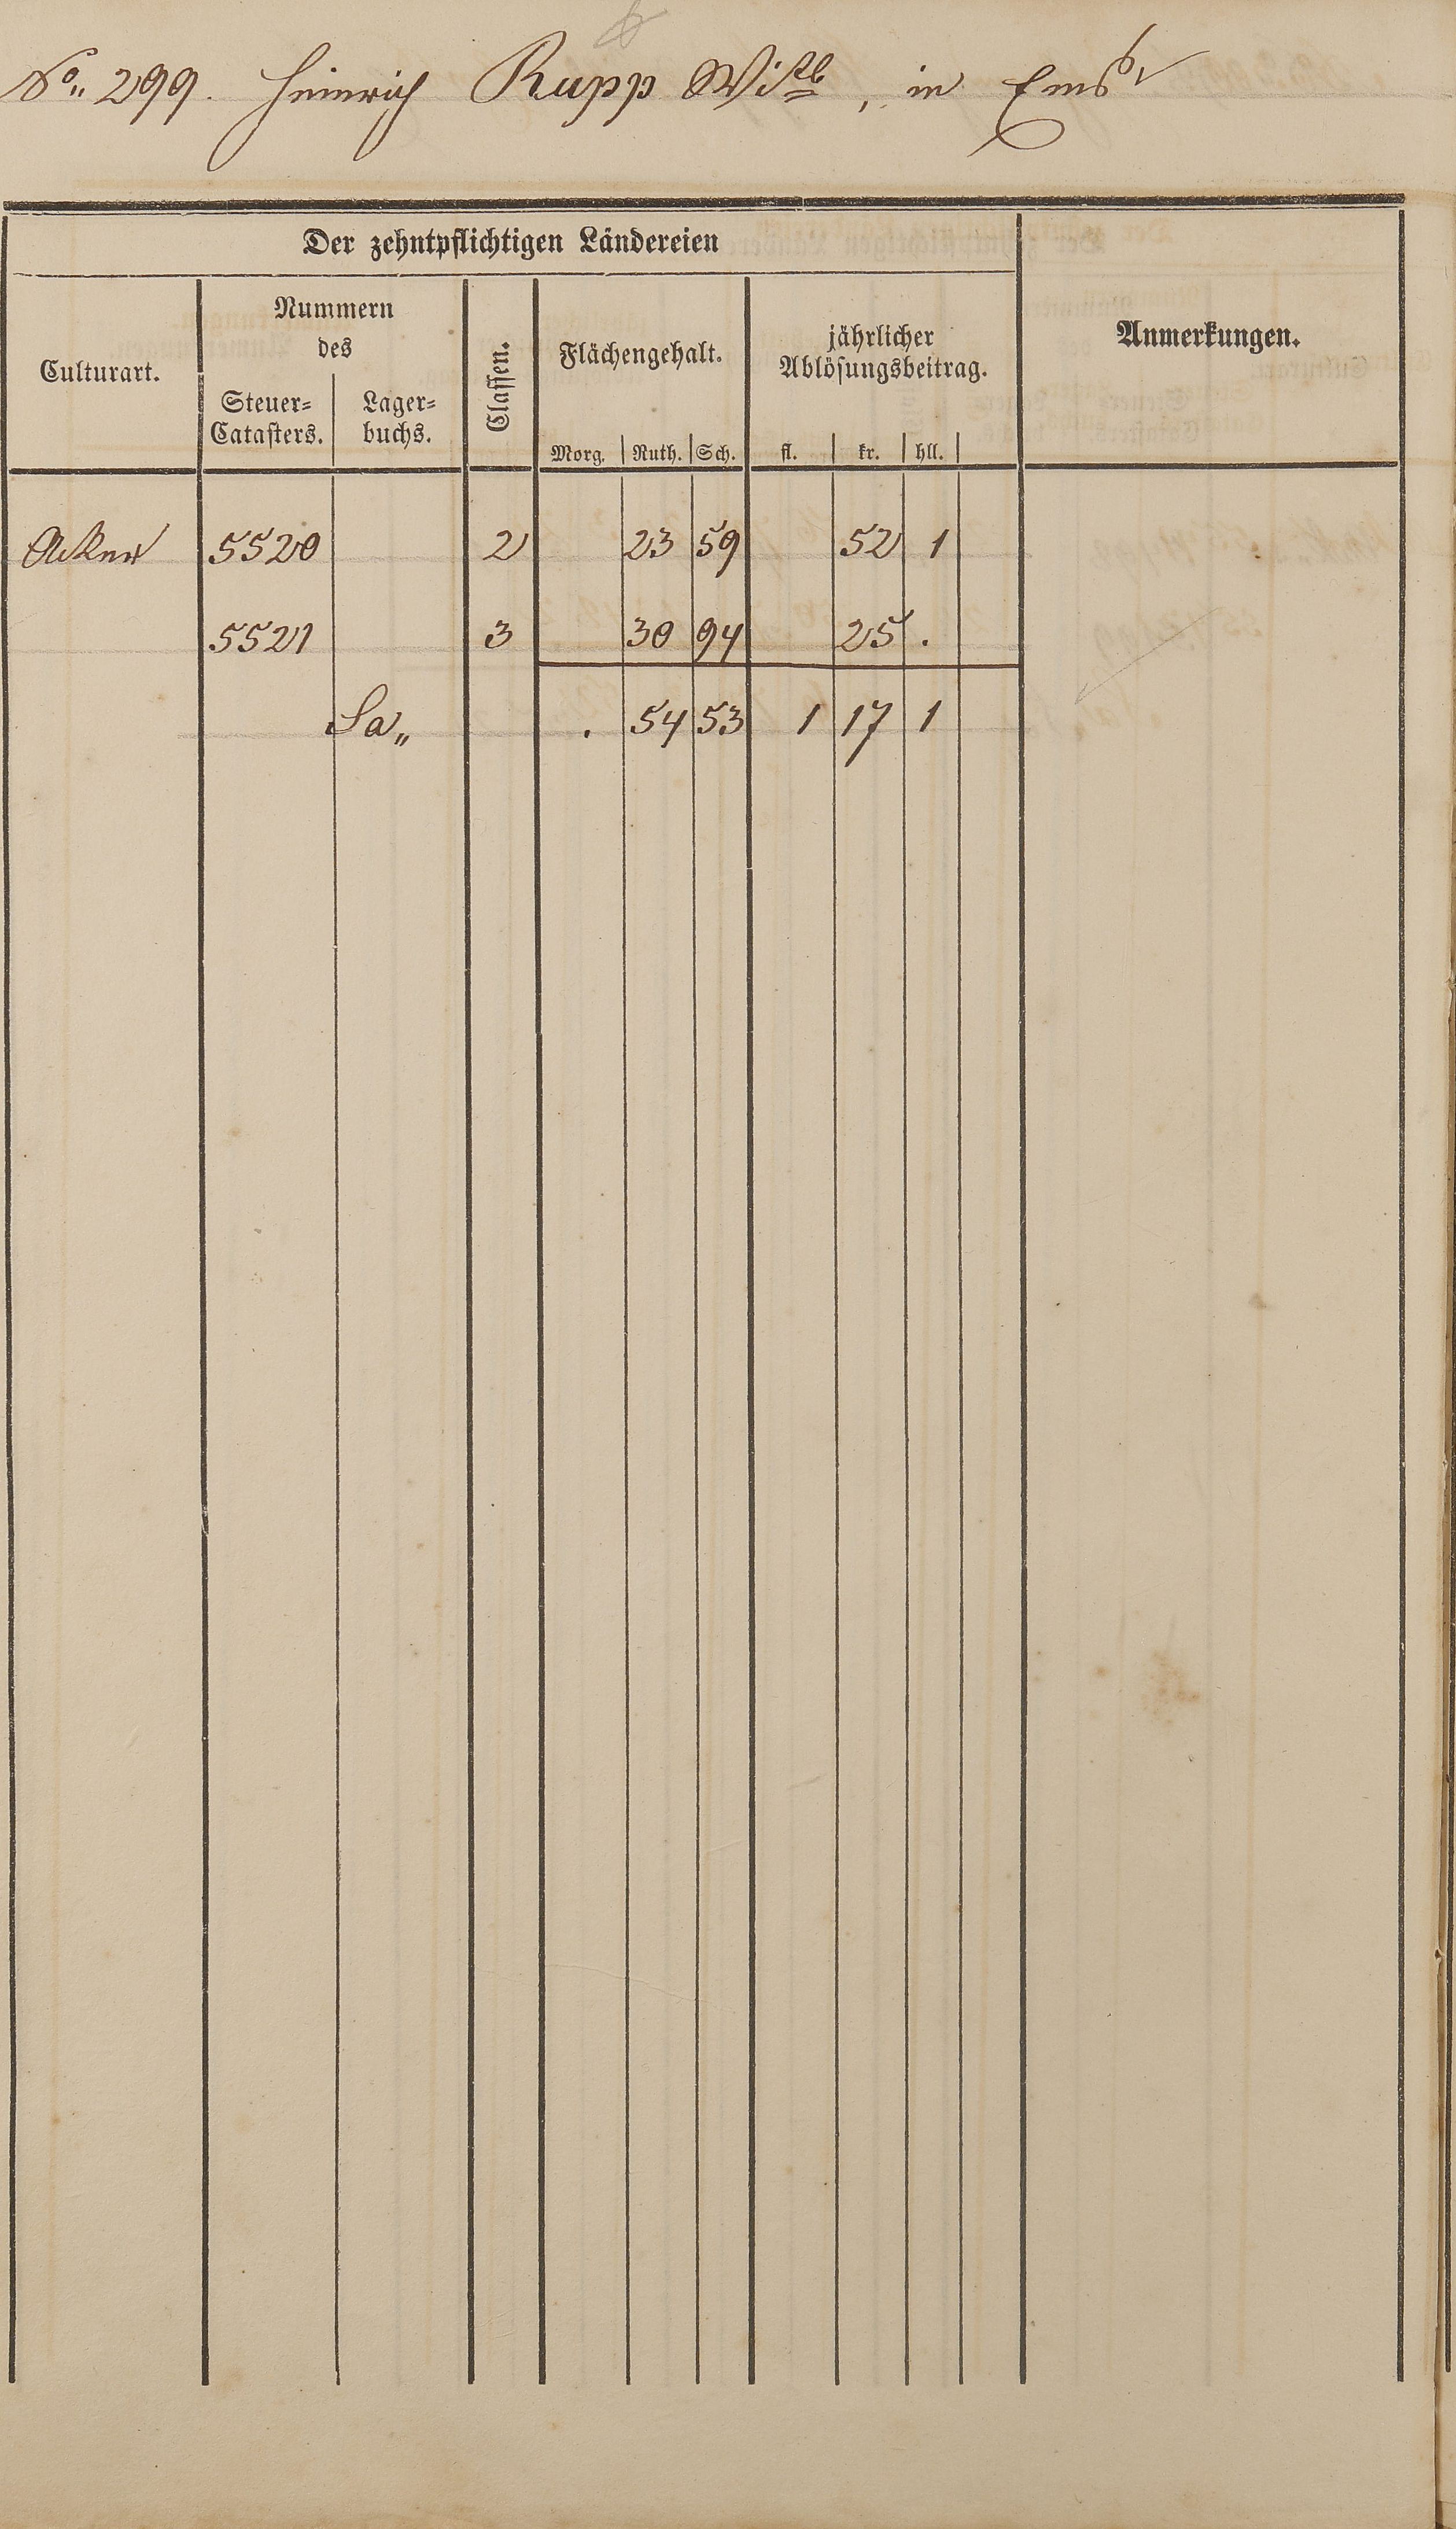 No. 299. Heinrich Rupp Wittb, in Ems
Der zehntpflichtigen Ländereien
Culturart.
Nummern
des
Steuer=
Catasters.
Lager=
buchs.
Classen.
Flächengehalt.
Morg. Ruth. Sch.
jährlicher
Ablösungsbeitrag.
fl. kr. hll.
Anmerkungen.
Acker 5520 2 23 59 52 1
5521 3 30 94 25 .
Sa„ . 54 53 1 17 1